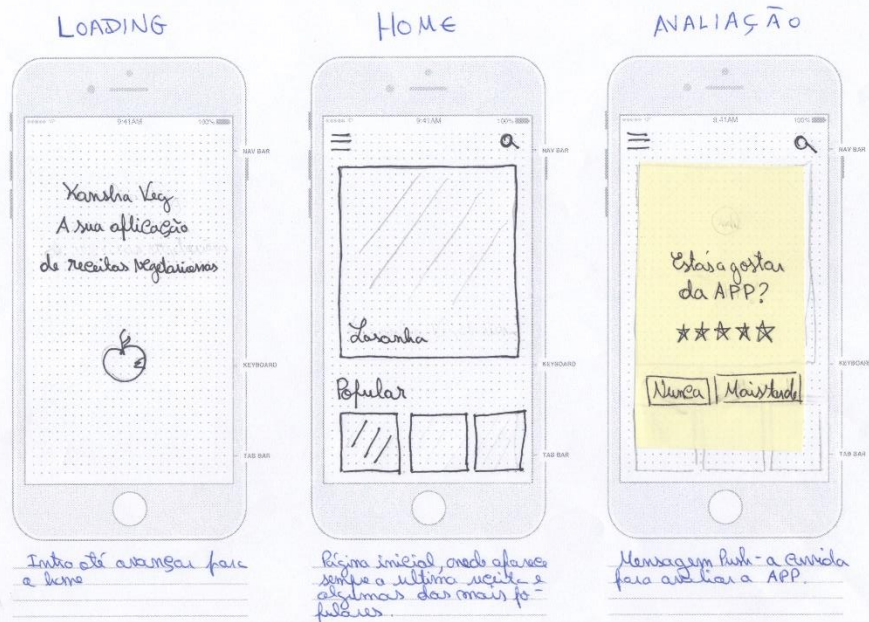 LOADING
HOME
AVALIAÇÃO
9:41AM
100%
NAV BAR
Kansha Veg
A sua aplicação
de receitas vegetarianas
KEYBOARD
TAB BAR
Intro até avançar para
a home
9:41AM
100%
NAV BAR
Lasanha
KEYBOARD
Popular
TAB BAR
Página inicial, onde aparece
sempre a ultima receita e
algumas das mais po-
pulares.
9:41AM
100%
NAV BAR
Estás a gostar
da APP?
KEYBOARD
Nunca
Mais tarde
TAB BAR
Mensagem Push - a convida
para avaliar a APP.